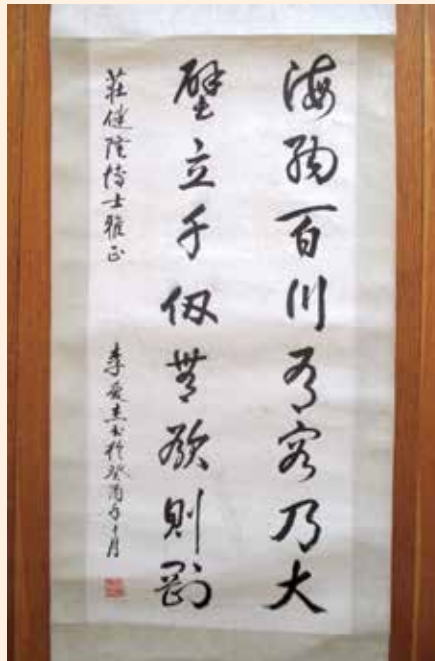 海納百川有容乃大
壁立千仞無欲則剛
莊健隆博士雅正
李愛杰書於癸酉年十月